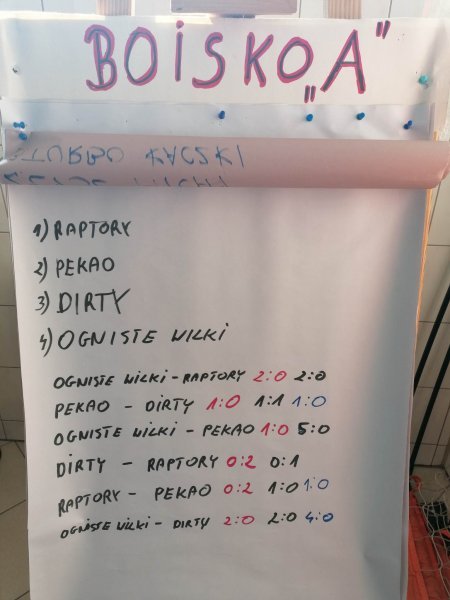 BOISKO „A"
TURBO KACZKI
1) RAPTORY
2) PEKAO
3) DIRTY
4) OGNISTE WILKI
OGNISTE WILKI - RAPTORY 2:0 2:0
PEKAO - DIRTY 1:0 1:1 1:0
OGNISTE WILKI - PEKAO 1:0 5:0
DIRTY - RAPTORY 0:2 0:1
RAPTORY - PEKAO 0:2 1:0 1:0
OGNISTE WILKI - DIRTY 2:0 2:0 4:0